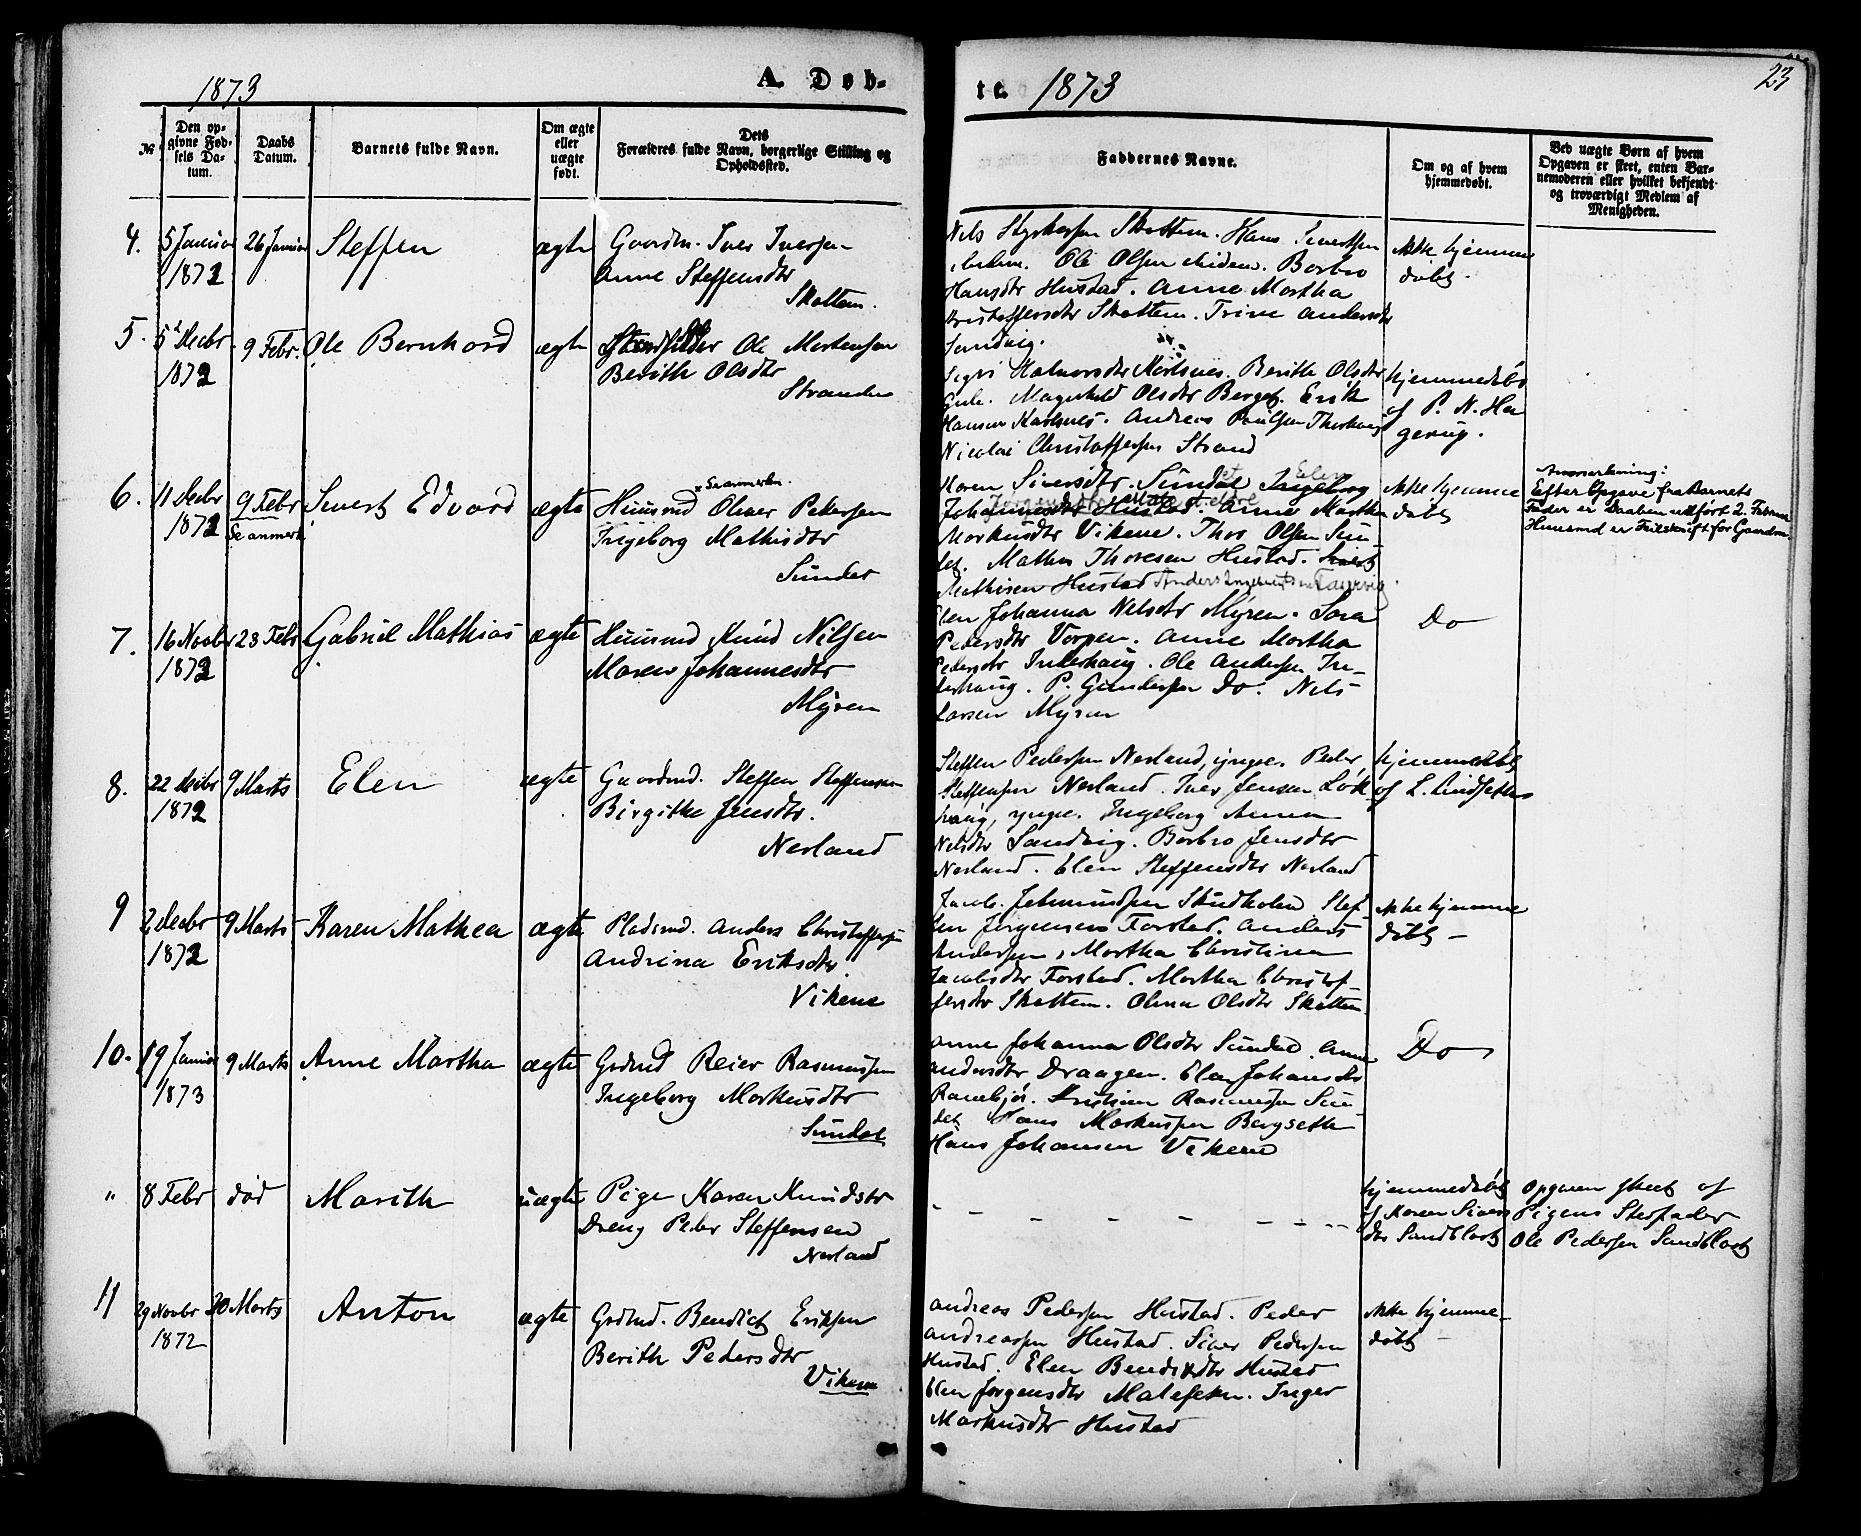 1873
A. Døb-
te.
1873
23
№
Den op-
givne Fød-
sels Da-
tum.
Daabs
Datum.
Barnets fulde Navn.
Om ægte
eller
uægte
født.
Dets
Forældres fulde Navn, borgerlige Stilling og
Opholdssted.
Faddernes Navne.
Om og af hvem
hjemmedøbt.
Ved uægte Børn af hvem
Opgaven er skeet, enten Bar-
nemoderen eller hvilket bekjendt
og troværdigt Medlem af
Menigheden.
4.
5 Januar
1872
26 Januar
Steffen
ægte
Gaardm. Iver Iversen
Anne Steffensdtr
Skottem.
Nils Styrkersen Skottem. Hans Sivertsen
Ole Olsen. Borbro
Hansdtr Hustad. Anne Martha
Kristoffersdtr Skottem. Trine Andersdtr
Sandvig.
Ikke hjemme
døbt.
5.
5 Decbr
1872
9 Febr.
Ole Bernhard
ægte
Ole Mortensen
Berith Olsdtr
Stranden
Berith Olsdtr
Gule. Magnhild Olsdtr Berget. Erik
Hansen. Andreas Poulsen
Nicolai Christoffersen Strand
hjemmedøbt
af P. N. Ha
gerup.
6.
11 Decbr
1872
9 Febr
Se anmerk.
Sivert Edvard
ægte
x Se anmerkn.
Huusmd Oliver Pedersen
Ingeborg Mathisdtr
Sundet
Maren Siversdtr. Sundet Ingeborg
Elen
Johannesdtr Hustad. Anne Martha
Markusdtr Vikene. Thor Olsen Sun-
det. Mathis Thoresen Hustad. Sivert
Mathisen Hustad
Ikke hjemme
døbt
Anmærkning:
Efter Opgave fra Barnets
Fader er Daaben udført 2. Februar
Huusmd er Feilskrift for Gaardm.
7.
16 Novbr
1872
23 Febr
Gabriel Mathias
ægte
Huusmd Knud Nilsen
Maren Johannesdtr
Myren
Elen Johanna Nilsdtr Myren. Sara
Pedersdtr Vorpen. Anne Martha
Pedersdtr Inderhaug. Ole Andersen In-
derhaug. P. Gundersen Do. Nils
Larsen Myren
Do
8.
22 Decbr
1872
9 Marts
Elen
ægte
Gaardmd. Steffen Steffensen
Birgitha Jensdtr.
Nerland
Steffen Pedersen Nerland, yngre. Peder
Steffensen Nerland. Iver Jensen Løk-
haug, yngre. Ingeborg Anna
Nilsdtr Sandvig. Borbro Jensdtr
Nerland. Elen Steffensdtr Nerland
hjemmedøbt
af L. Lindseth
9
2 Decbr
1872
9 Marts
Karen Mathea
ægte
Pladsmd. Anders Christoffersen
Andrina Eriksdtr.
Vikene
Jacob Skudholm Stef-
fen Jørgensen Forstad. Anders
Andersen, Martha Christina
Jacobsdtr Forstad. Martha Christof-
fersdtr Skottem. Olina Olsdtr Skottem
Ikke hjemme
døbt
10.
19 Januar
1873
9 Marts
Anne Martha
ægte
Grdmd Reier Rasmussen
Ingeborg Markusdtr
Sundet
Anne Johanna Olsdtr Sundet. Anne
Andersdtr Draagen. Elen Johansdtr
Kristian Rasmussen Sun-
det Hans Markussen Bergseth
Hans Johansen Vikene
Do
"
8 Febr
død
Marith
uægte
Pige Karen Knudsdtr
Dreng Peder Steffensen
Nerland
hjemmedøbt
af Karen Sivers
dtr Sandblost
Opgaven skeet af
Pigens Stedfader
Ole Pedersen Sandblost
11
29 Novbr
1872
30 Marts
Anton
ægte
Grdmd. Bendict Eriksen
Berith Pedersdtr
Vikene
Andreas Pedersen Hustad. Peder
Andreassen Hustad. Siver Pedersen
Hustad. Elen Bendiktdtr Hustad
Elen Jørgensdtr Malefeten. Inger
Markusdtr Hustad
Ikke hjemme-
døbt